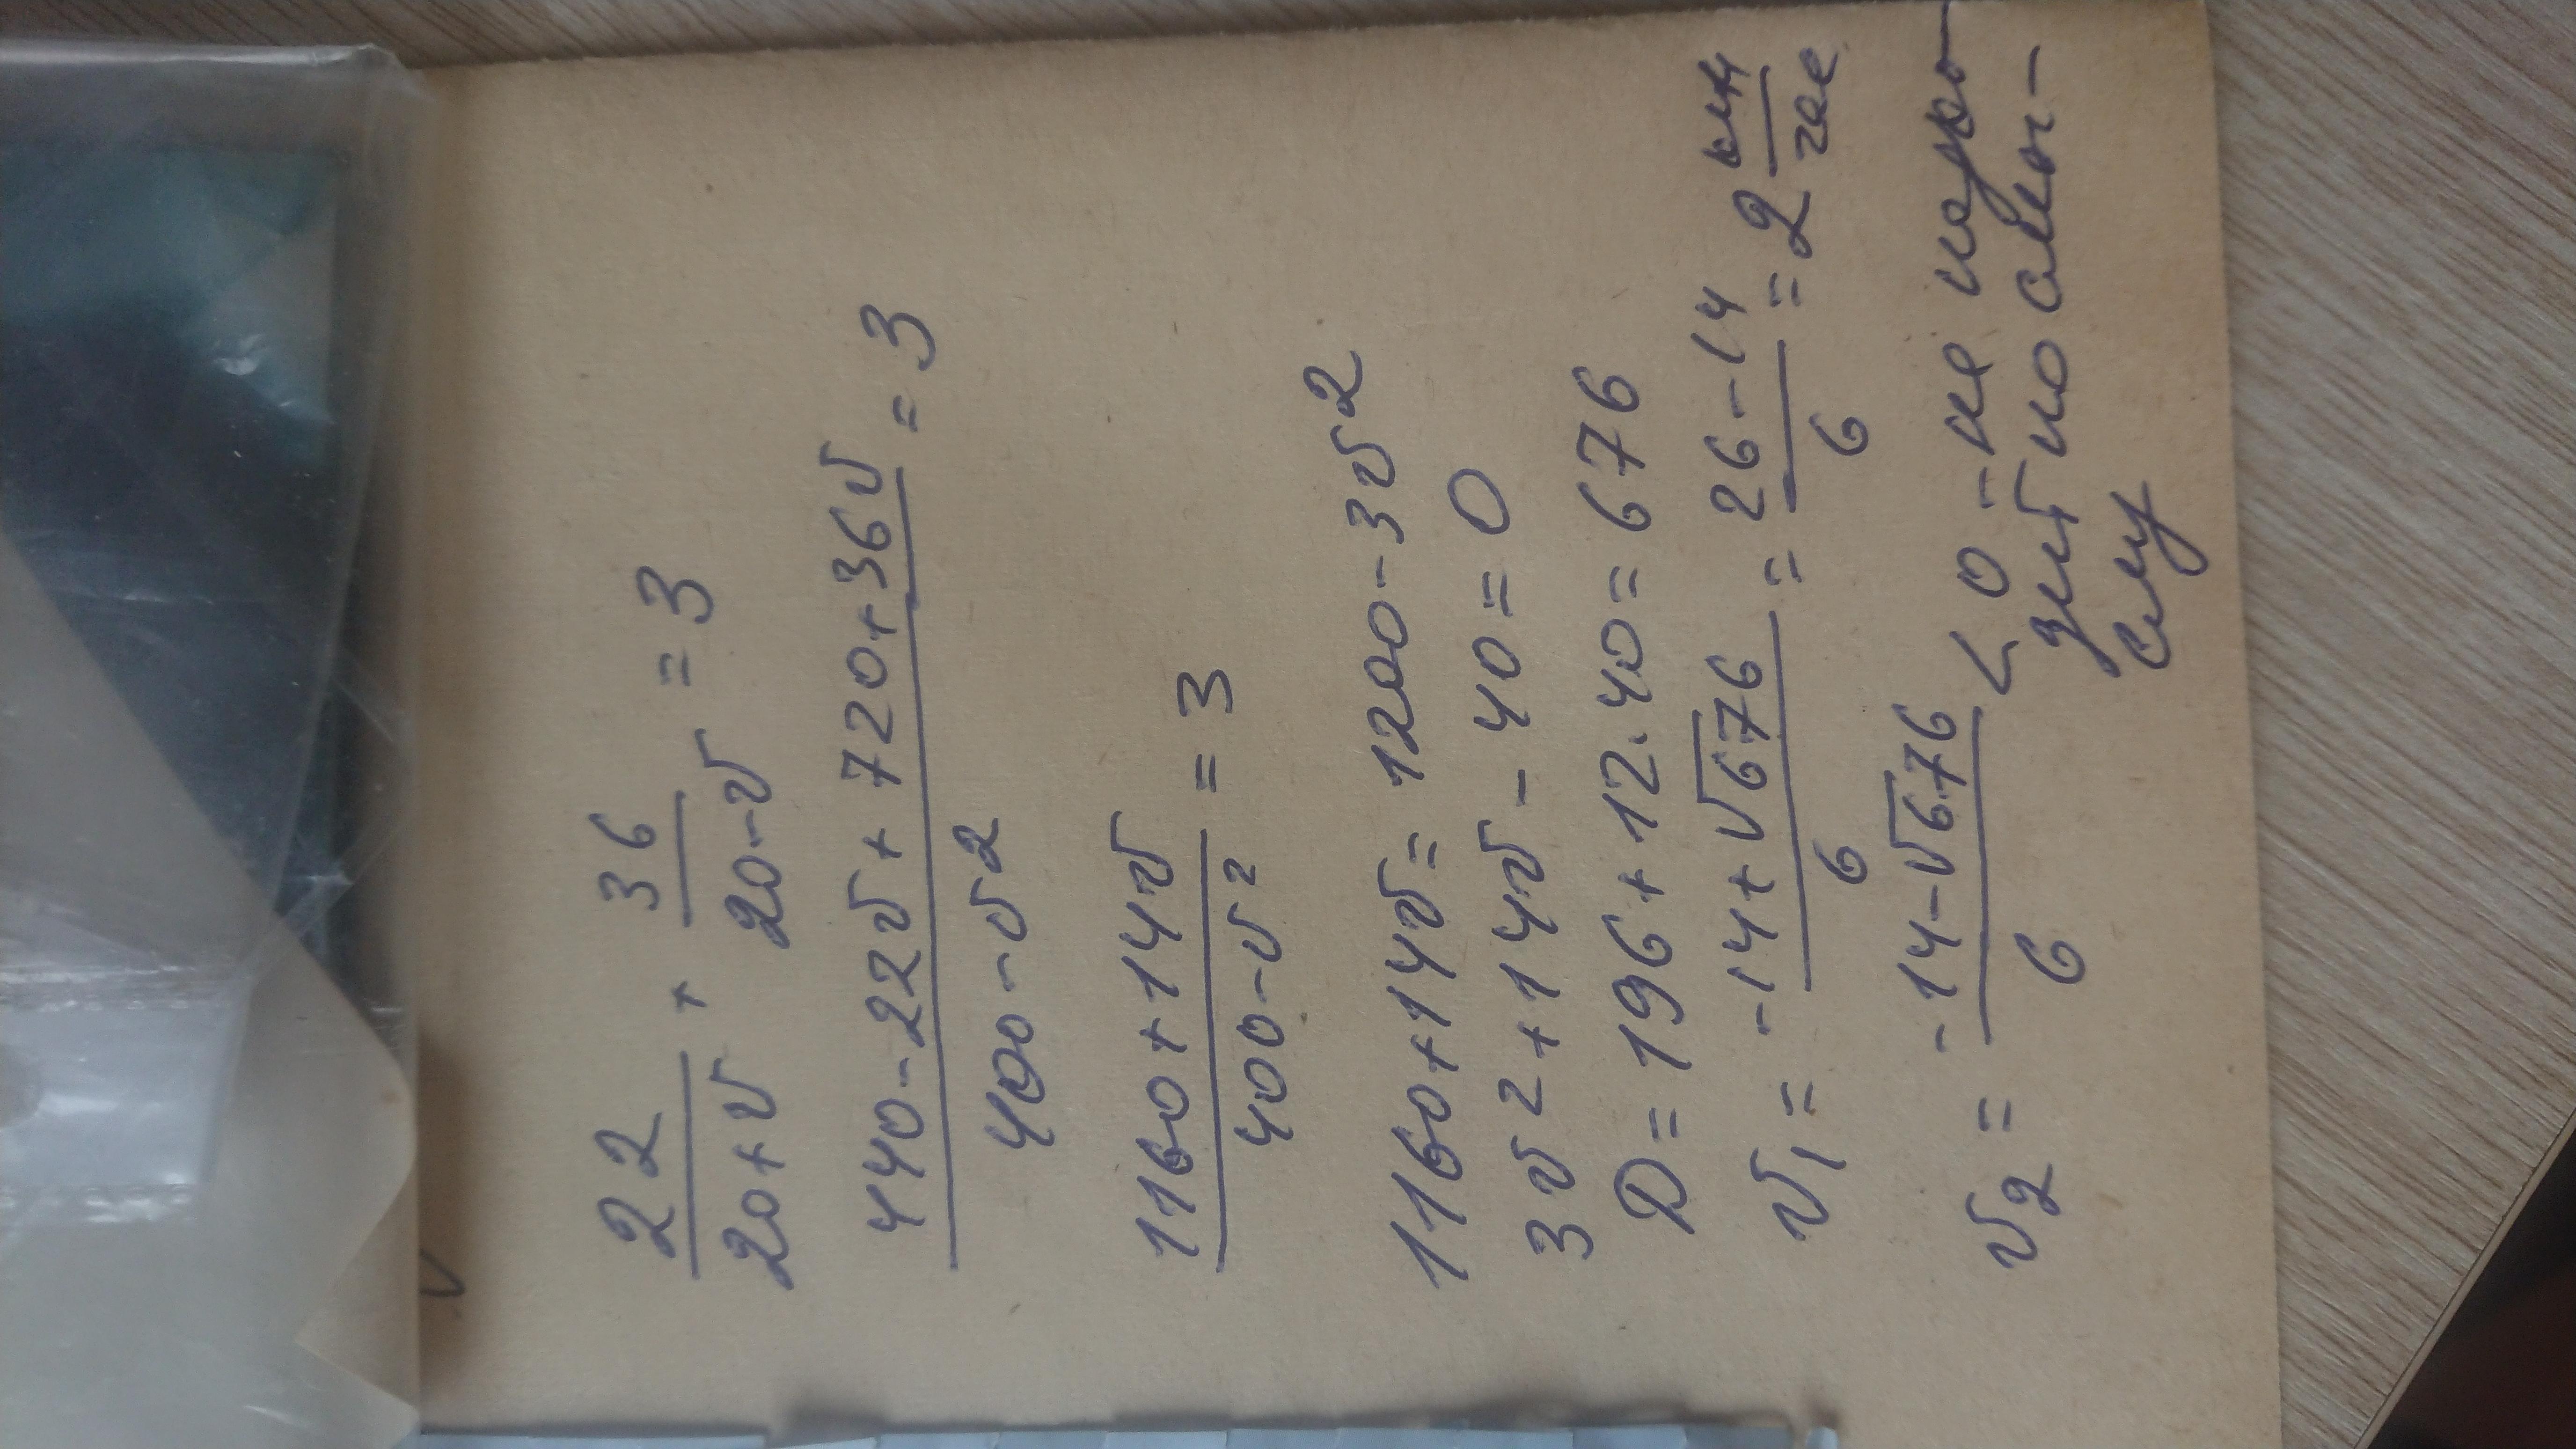 22/(20+v) + 36/(20-v) = 3
(440-22v+720+36v)/(400-v²) = 3
(1160+14v)/(400-v²) = 3
1160+14v = 1200-3v²
3v²+14v-40=0
D=196+12·40=676
v₁ = (-14+√676)/6 = (26-14)/6 = 2 км/час
v₂ = (-14-√676)/6 < 0 - не подхо-
дит по смы-
слу